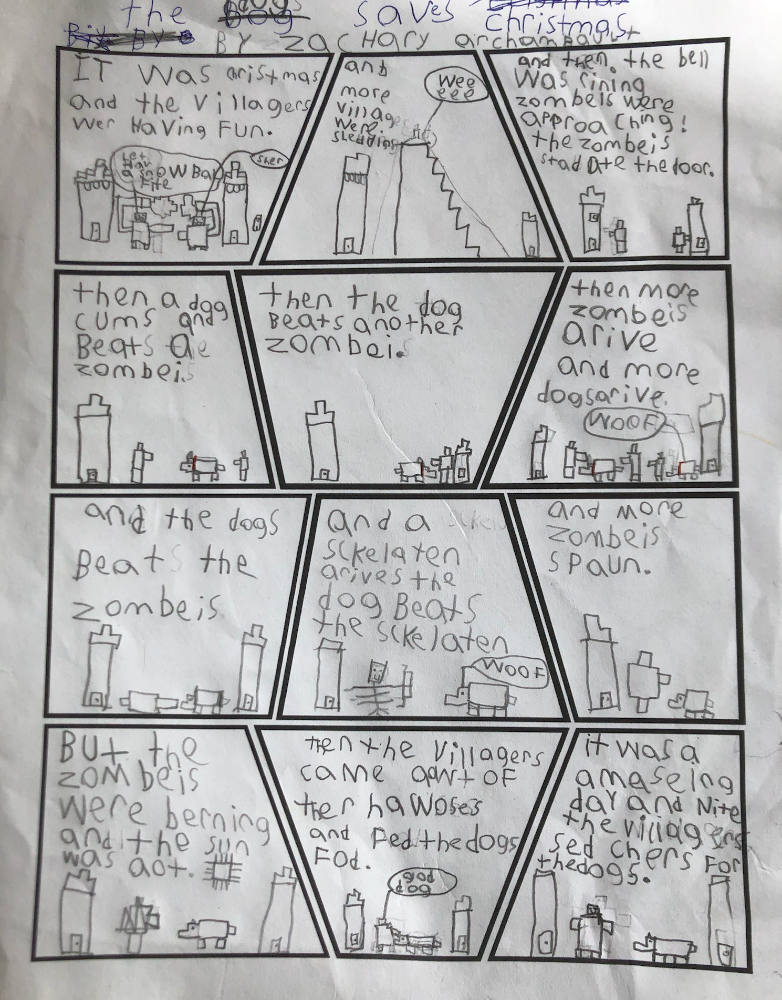 the Dogs saves Christmas
BY zacHary archambault
IT was cristmas
and the villagers
wer HaviNG FUN.
Let
Hav
a snow Ball
Fite
sher
and
more
villagers
were
sledding
Wee
eee
and then. the bell
was rining
zombeis were
approa ching!
the zombeis
stad ate the door.
then a dog
cums and
Beats a
zombei.
then the dog
Beats another
zombei.
then more
zombeis
arive
and more
dogsarive.
WOOF
and the dogs
Beat the
zombeis
and a
sckelaten
arives the
dog Beats
the sckelaten
WOOF
and more
zombeis
spaun.
BUt the
zombeis
were berning
and the sun
was aot.
then the villagers
came aowt oF
ther hawoses
and Fed thedogs
Fod.
god
dog
it was a
amaseing
day and Nite
the villagers
sed chers For
thedogs.